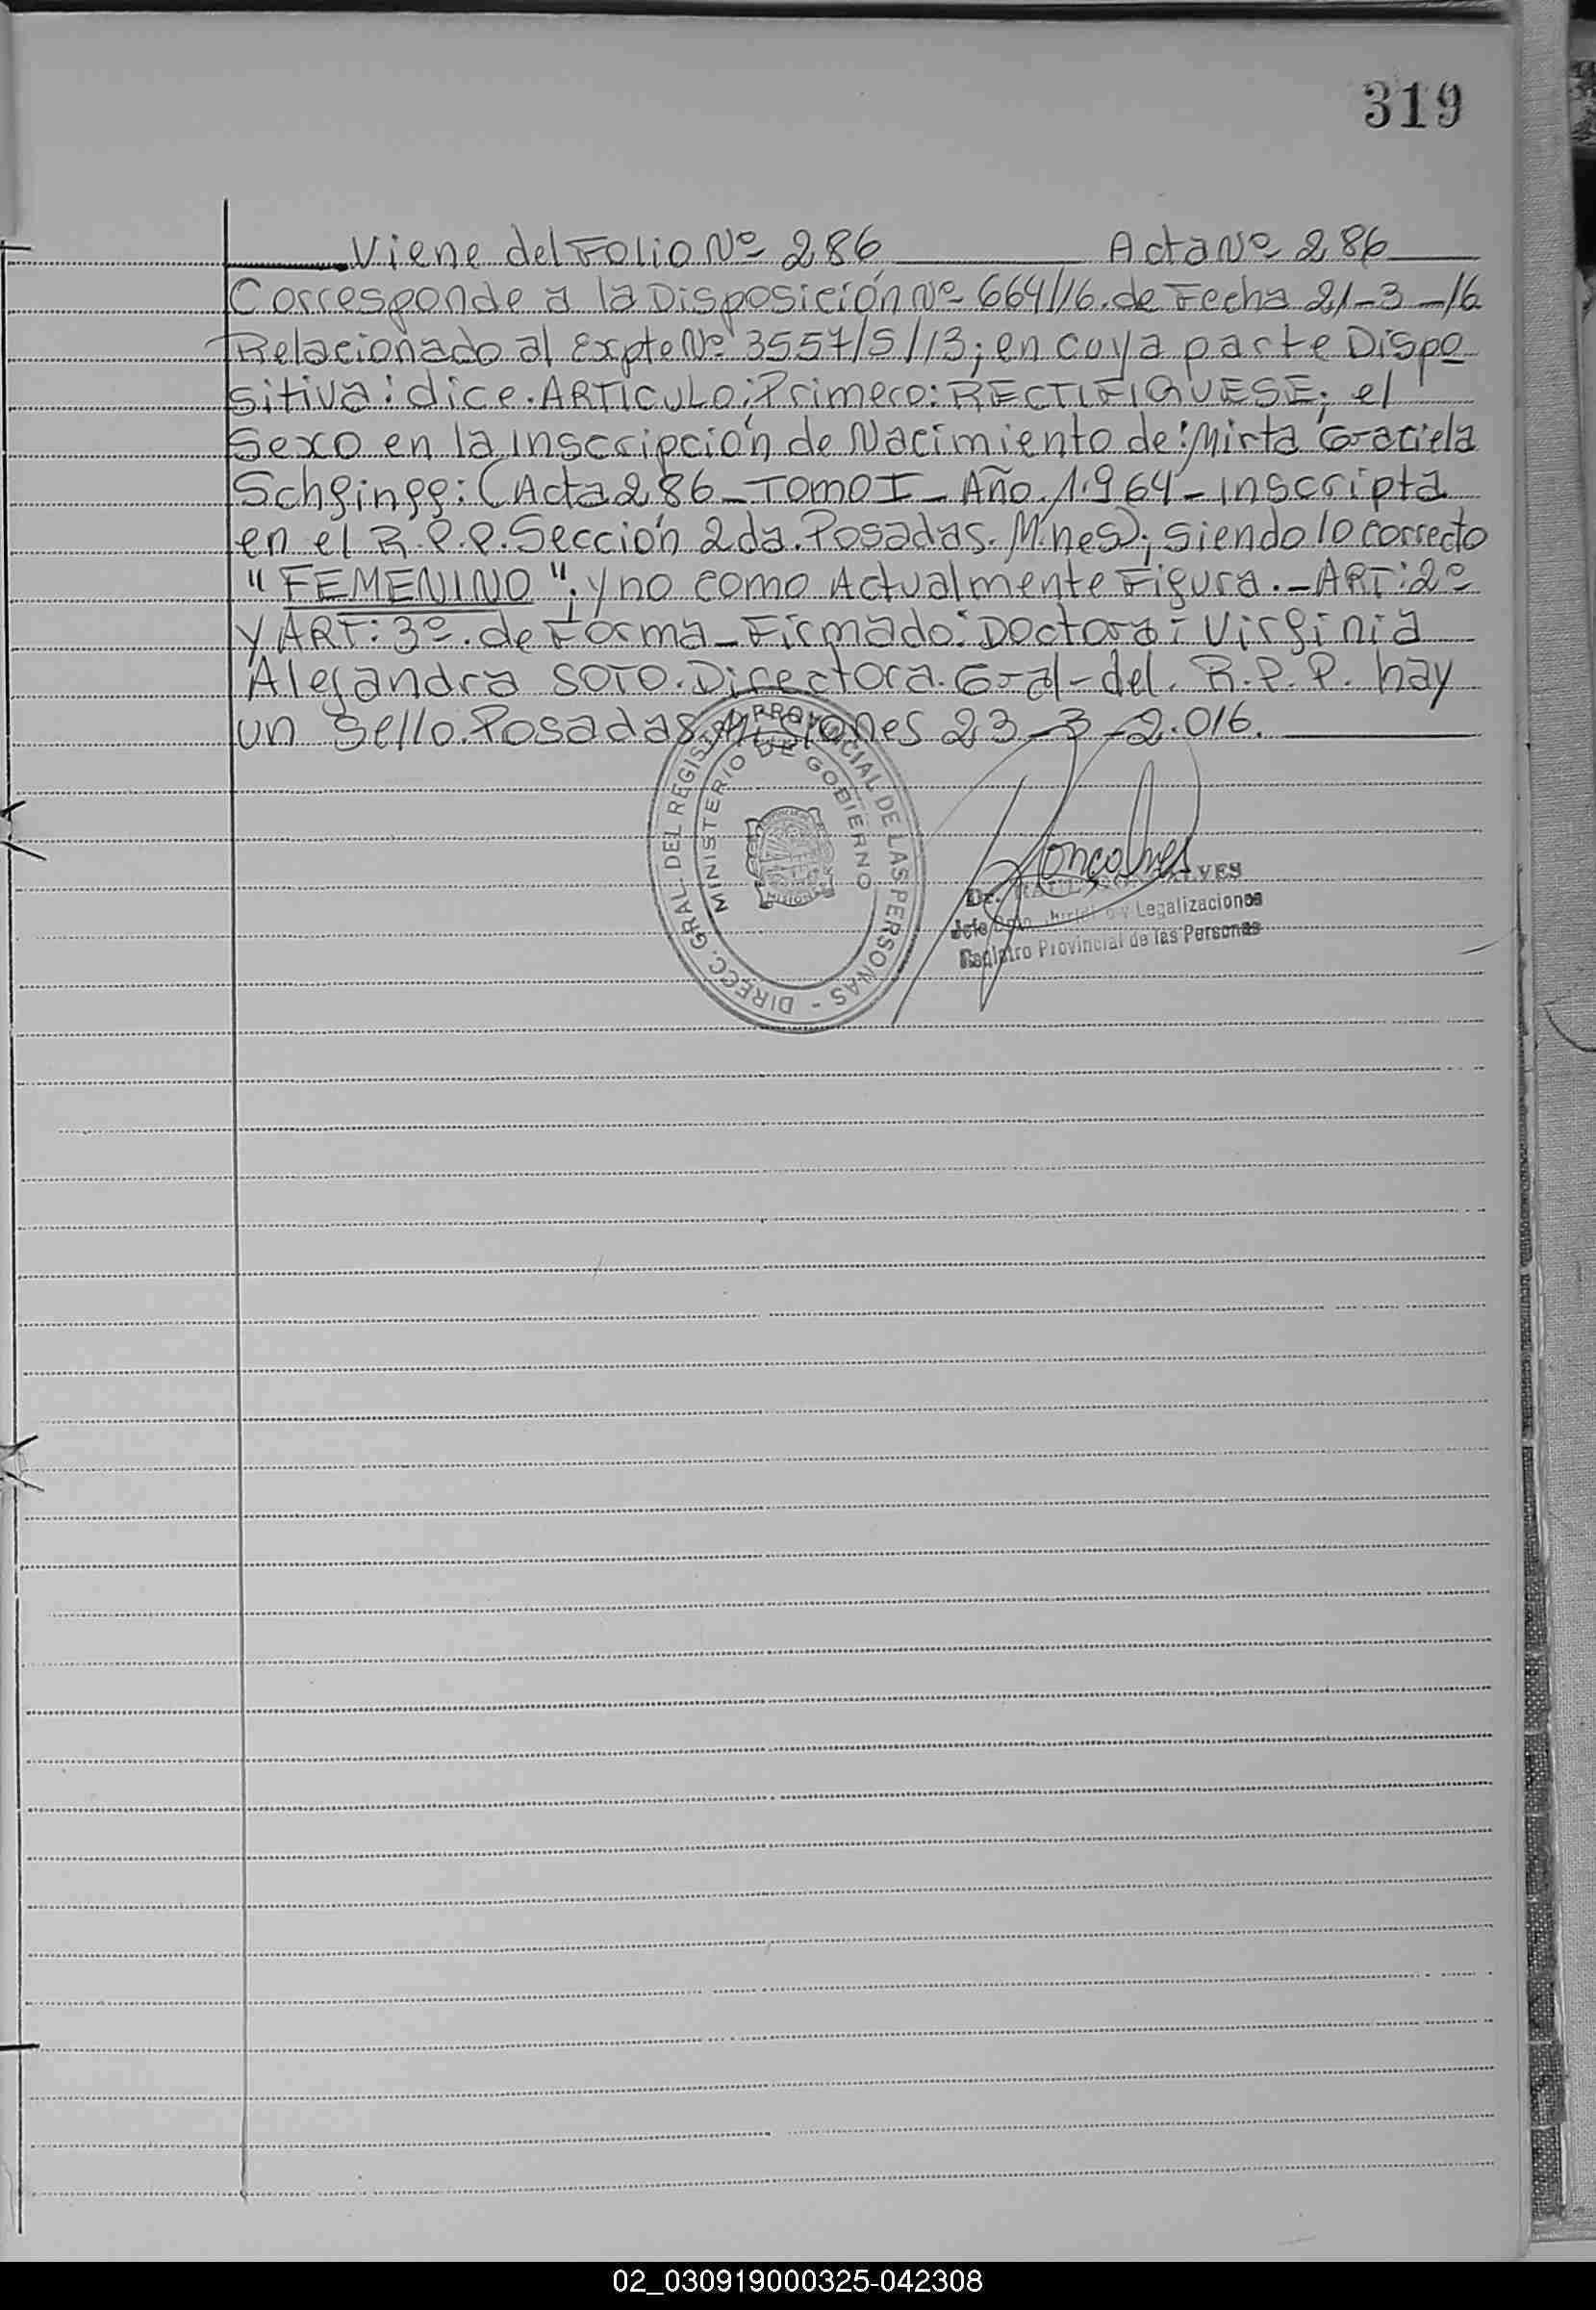 319
Viene del Folio Nº 286 Acta Nº 286
Corresponde a la Disposición Nº 664/16. de Fecha 21-3-16
Relacionado al Expte Nº 3557/S/13; en cuya parte Dispo
sitiva: dice. ARTICULO: Primero: RECTIFIQUESE; el
Sexo en la Inscripción de Nacimiento de: Mirta Graciela
(Acta 286 - Tomo I - Año. 1.964 - Inscripta
en el R.P.P. Sección 2da. Posadas. M.nes); siendo lo correcto
"FEMENINO"; y no como Actualmente Figura. - ART: 2º
y ART: 3º. de Forma - Firmado: Doctora: Virginia
Alejandra SOTO. Directora. Gral - del. R.P.P. hay
un sello. Posadas, Misiones 23-3-2.016.
DIRECC. GRAL. DEL REGISTRO PROVINCIAL DE LAS PERSONAS -
MINISTERIO DE GOBIERNO
MISIONES
Dr.
Jefe Dpto. y Legalizaciones
Registro Provincial de las Personas
02_030919000325-042308